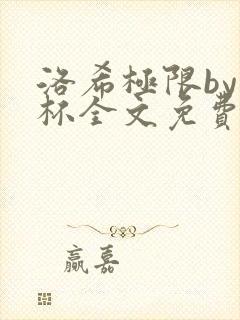 洛希極限by
杯全文免費
赢嘉